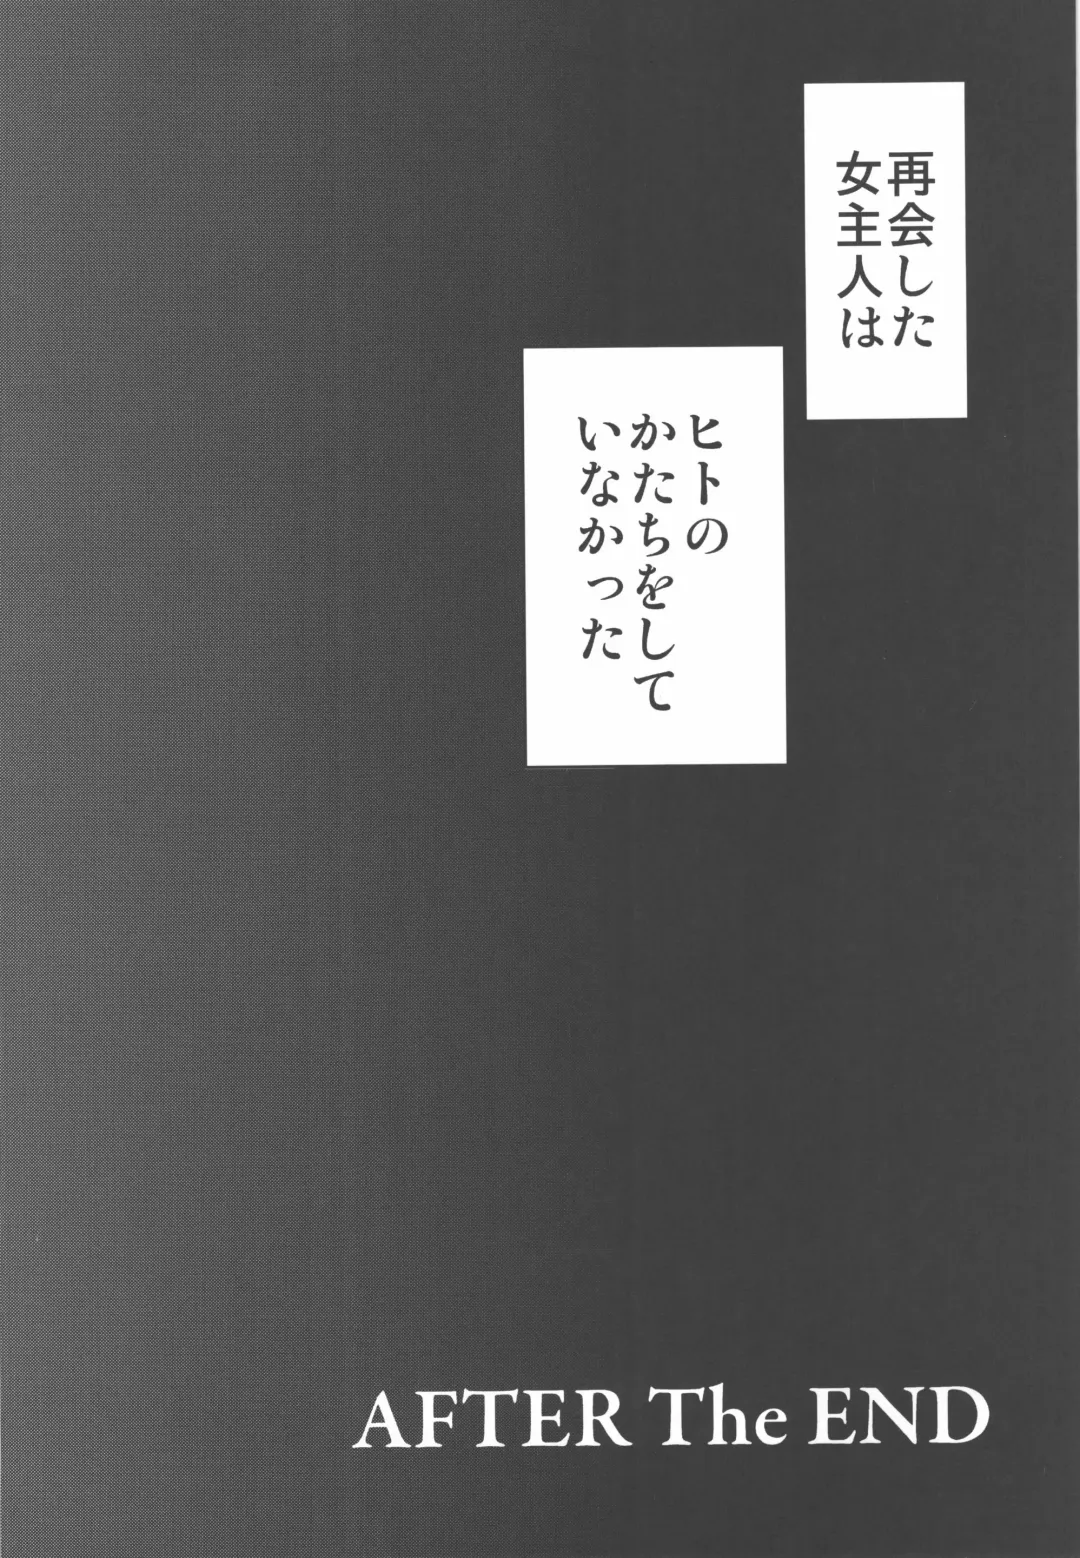 再会した
女主人は
ヒトの
かたちをして
いなかった
AFTER The END